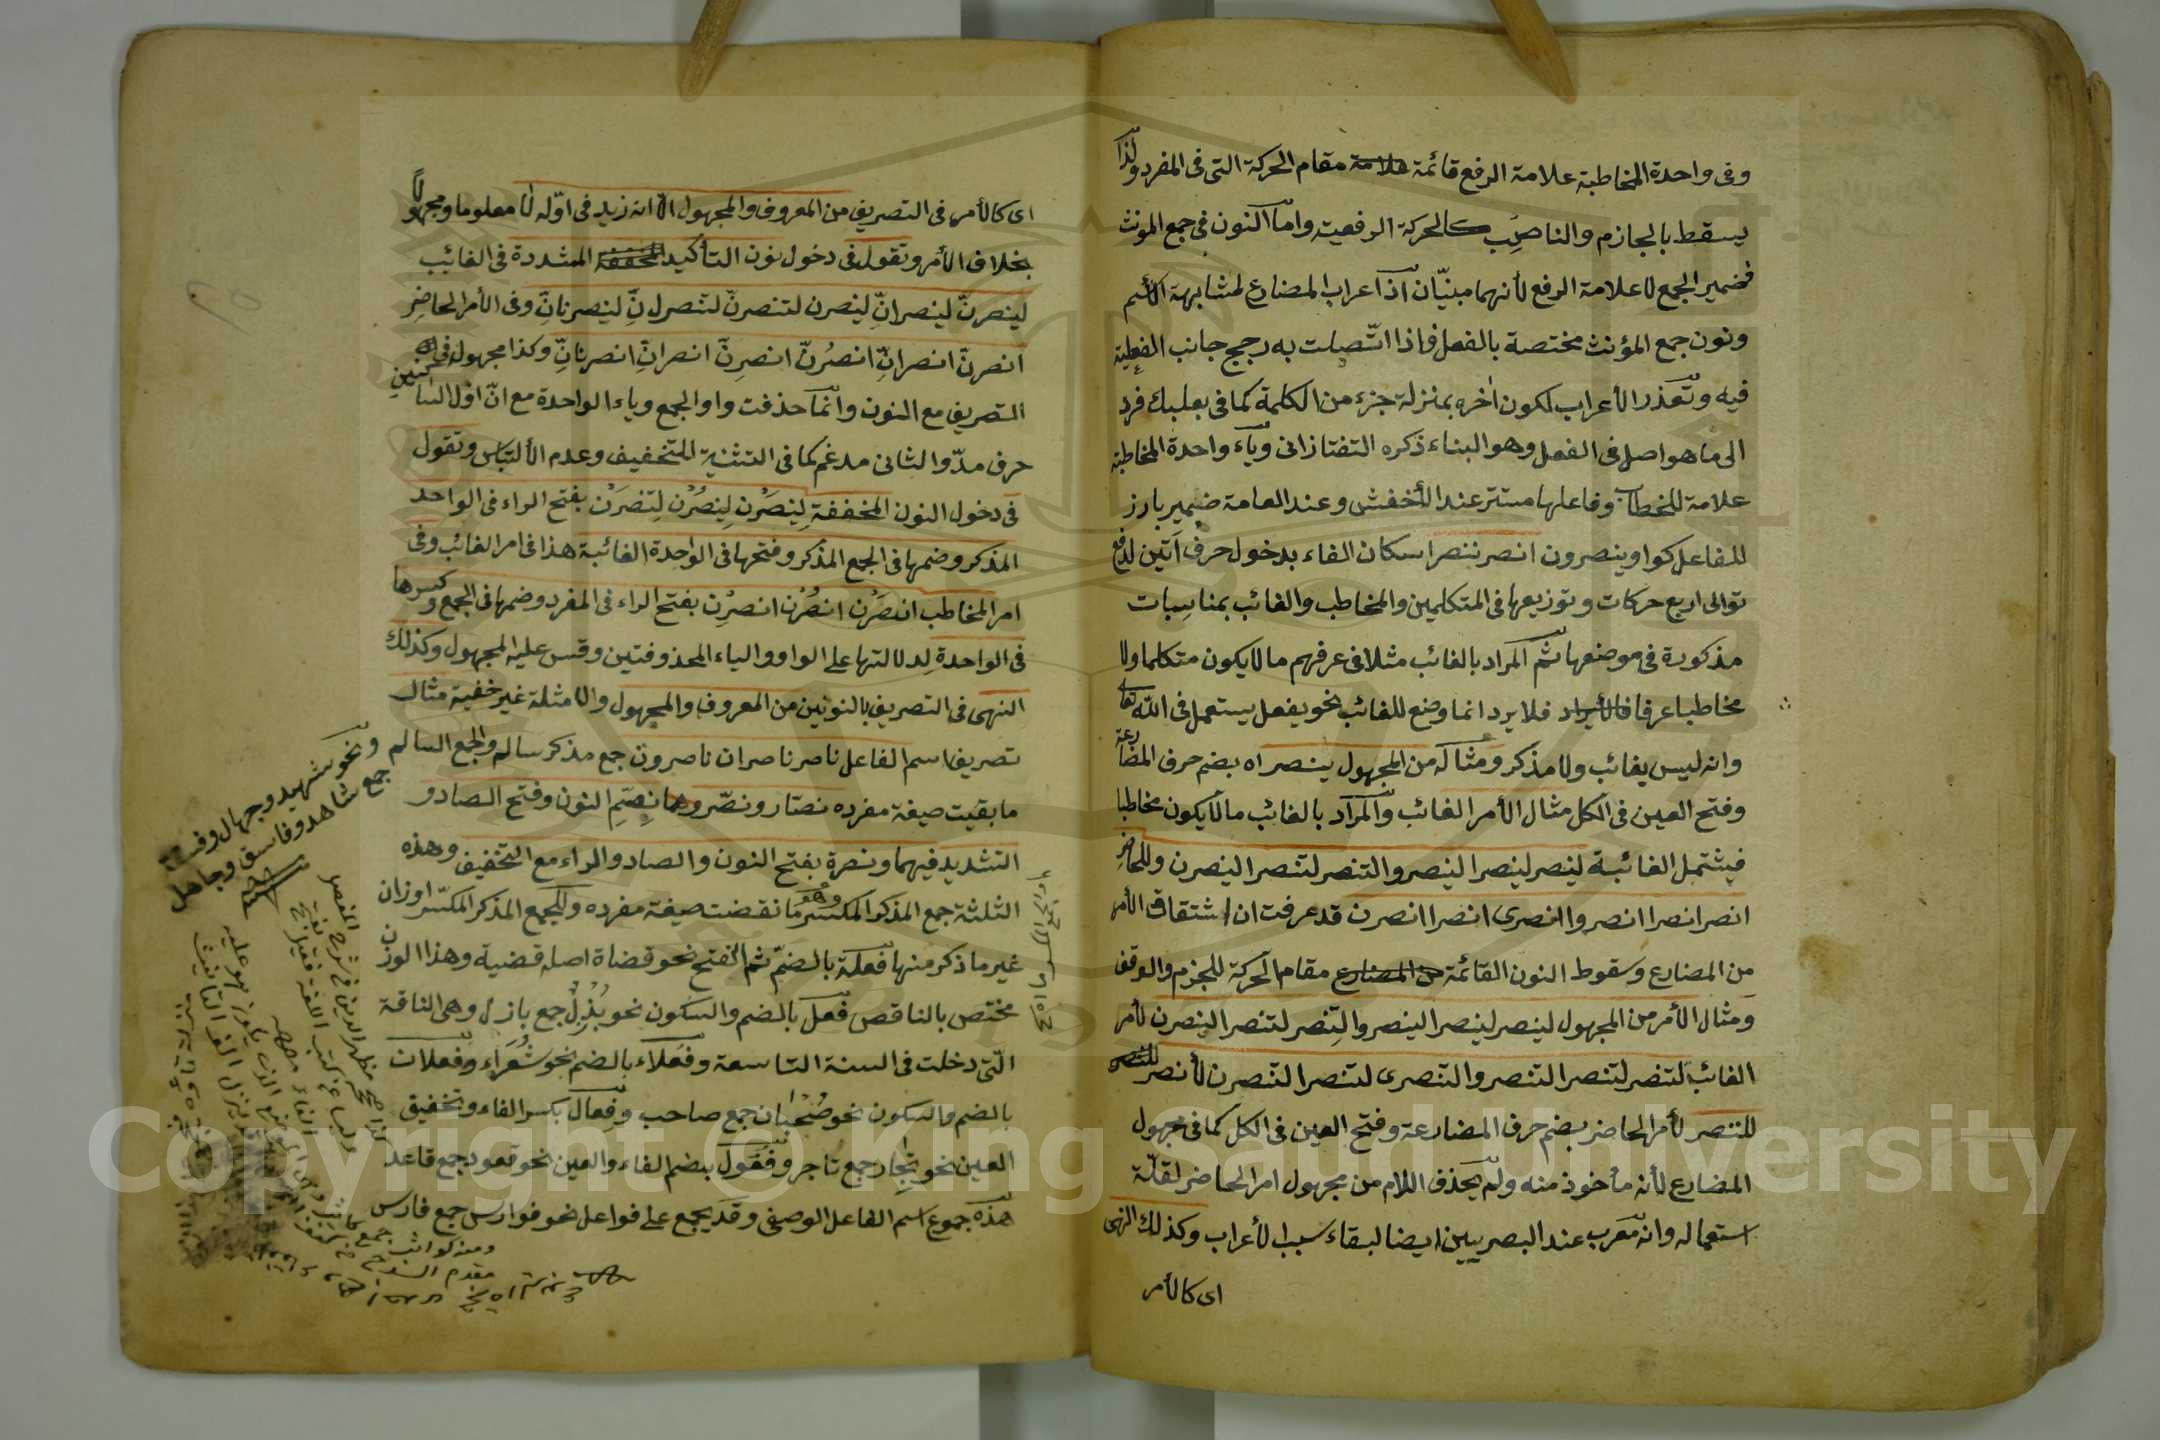 وفى واحدة المخاطبة علامة الرفع قائمة علامة مقام الحركة التى فى المفرد ولذا
يسقط بالجازم والناصب كالحركة الرفعية واما النون فى جمع المونث
فضمير الجمع لا علامة الرفع لأنهما مبنيان اذا اعراب المضارع لمشابهة الأسم
ونون جمع المؤنث مختصة بالفعل فاذا اتصلت به رجح جانب الفعلية
فيه وتعذر الأعراب لكون اخره بمنزلة جزء من الكلمة كما فى بعلبك فرد
الى ما هو اصل فى الفعل وهو البناء ذكره التفتازانى وياء واحدة المخاطبة
علامة للخطاب وفاعلها مستتر عند الأخفش وعند العامة ضمير بارز
للفاعل كواو ينصرون انصر ننصر اسكان الفاء بدخول حرف اتين لدفع
توالى اربع حركات وتوزيعها فى المتكلمين والمخاطب والغائب بمناسبات
مذكورة فى موضعها ثم المراد بالغائب مثلا فى عرفهم ما لا يكون متكلما ولا
مخاطبا عرفا فلا يرد انما وضع للغائب نحو يفعل يستعمل فى الله تعالى
وانه ليس بغائب ولا مذكر ومثاله من المجهول ينصر اه بضم حرف المضارعة
وفتح العين فى الكل مثال الأمر الغائب والمراد بالغائب ما لا يكون مخاطبا
فيشتمل الغائبة لينصر لينصرا لينصروا لتنصر لتنصرا لينصرن وللحاضر
انصر انصرا انصروا انصرى انصرا انصرن قد عرفت ان اشتقاق الأمر
من المضارع وسقوط النون القائمة من المضارع مقام الحركة للجزم والوقف
ومثال الأمر من المجهول لينصر لينصرا لينصروا لتنصر لتنصرا لينصرن لأمر
الغائب لتنصر لتنصرا لتنصروا لتنصرى لتنصرا لتنصرن لأنصر
لننصر لأمر الحاضر بضم حرف المضارعة وفتح العين فى الكل كما فى مجهول
المضارع لأنه مأخوذ منه ولم يحذف اللام من مجهول امر الحاضر لقلة
استعماله وانه معرب عند البصريين ايضا لبقاء سبب الأعراب وكذلك النهى
اى كالأمر
اى كالأمر فى التصريف من المعروف والمجهول الا انه زيد فى اوله لا معلوما ومجهولا
بخلاف الأمر وتقول فى دخول نون التأكيد المخففة المشددة فى الغائب
لينصرن لينصران لينصرن لتنصرن لتنصران لينصرنان وفى الأمر الحاضر
انصرن انصران انصرن انصرن انصران انصرنان وكذا مجهوله فى
التصريف مع النون وانما حذفت واو الجمع وياء الواحدة مع ان اول الساكنين
حرف مد والثانى مدغم كما فى التثنية للتخفيف وعدم الألتباس وتقول
فى دخول النون المخففة لينصرن لينصرن لتنصرن بفتح الراء فى الواحد
المذكر وضمها فى الجمع المذكر وفتحها فى الواحدة الغائبة هذا فى امر الغائب وفى
امر المخاطب انصرن انصرن انصرن بفتح الراء فى المفرد وضمها فى الجمع وكسرها
فى الواحدة لدلالتها على الواو والياء المحذوفتين وقس عليه المجهول وكذلك
النهى فى التصريف بالنونين من المعروف والمجهول والامثلة غير خفية مثال
تصريف اسم الفاعل ناصر ناصران ناصرون جمع مذكر سالم والجمع السالم
ما بقيت صيغة مفرده نصار ونصر وهما بضم النون وفتح الصاد و
التشديد فيهما ونصرة بفتح النون والصاد والراء مع التخفيف وهذه
الثلثة جمع المذكر المكسر وهو ما نقضت صيغة مفرده وللجمع المذكر المكسر اوزان
غير ما ذكر منها فعلة بالضم ثم الفتح نحو قضاة اصله قضية وهذا الوزن
مختص بالناقص فعل بالضم والسكون نحو بذل جمع بازل وهى الناقة
التى دخلت فى السنة التاسعة وفعلاء بالضم نحو شعراء وفعلان
بالضم والسكون نحو صحبان جمع صاحب وفعال بكسر الفاء وتخفيف
العين نحو تجار جمع تاجر وفعول بضم الفاء والعين نحو قعود جمع قاعد
هذه جموع اسم الفاعل الوصفى وقد يجمع على فواعل نحو فوارس جمع فارس
ونحو شهيد وجهال وفسقة
جمع شاهد وفاسق وجاهل
Copyright © King Saud University